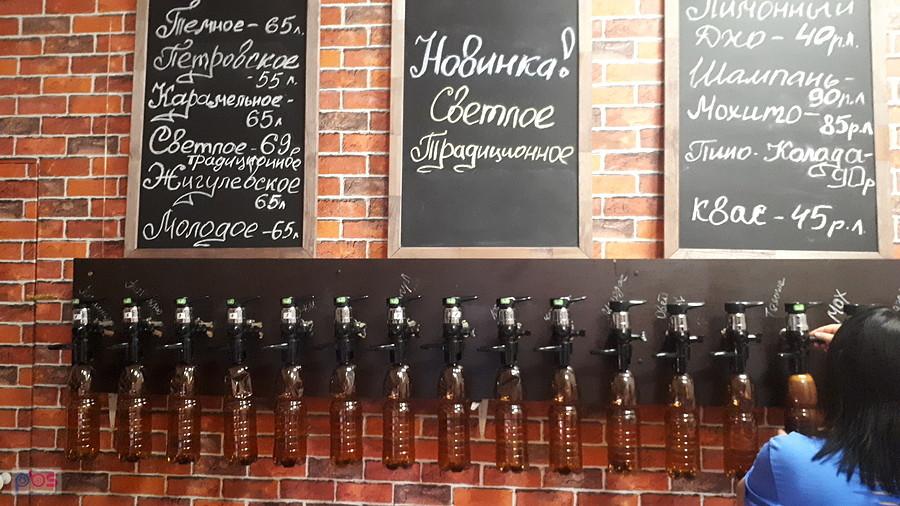 Темное - 65л.
Петровское
- 55 л.
Карамельное -
65л
Светлое - 69р
традиционное
Жигулевское
65л
Молодое - 65л
Новинка!
Светлое
Традиционное
Лимонный
Джо - 40р.л.
Шампань -
90р.л
Мохито -
85р.л
Пино-Колода -
90р
квас - 45р.л.
МОХ
pbs